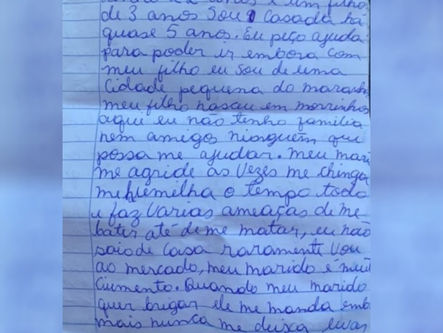 de 3 anos Sou casada há
quase 5 anos. Eu peço ajuda
para poder ir embora com
meu filho eu sou de uma
Cidade pequena do maranh
meu filho nasceu em morrinhos
aqui eu não tenho família
nem amigos ninguém que
possa me ajudar. Meu mari
me agride as vezes me chinga
me humilha o tempo todo
e faz varias ameaças de me
bater até de me matar, eu não
saio de casa raramente vou
ao mercado, meu marido é muit
Ciumento. Quando meu marido
quer brigar ele me manda emb
mais nunca me deixa levar